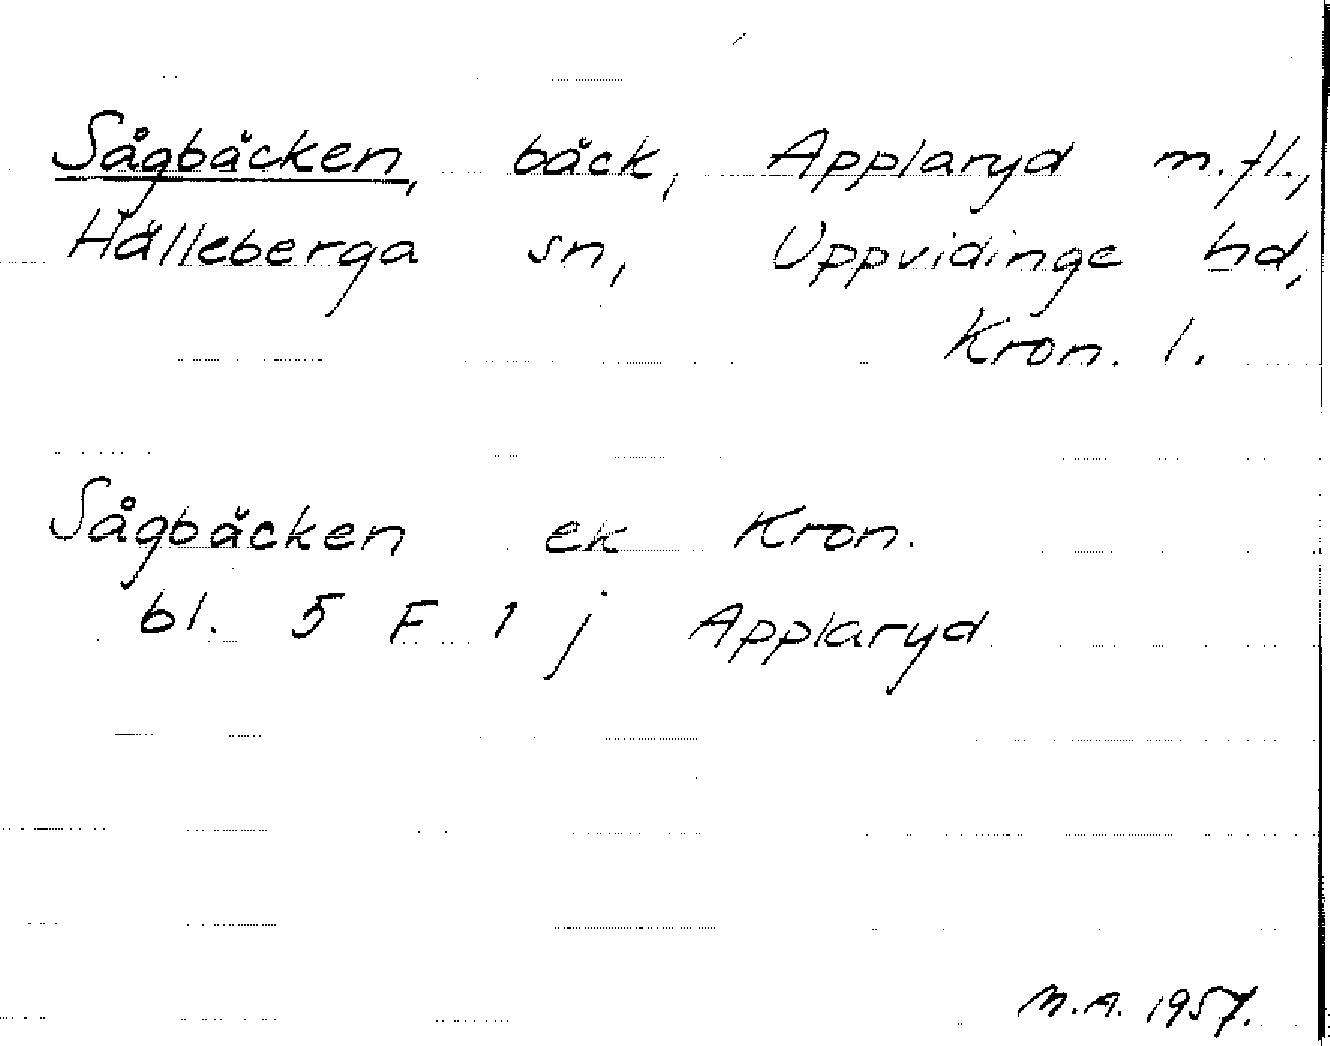 Sågbäcken, bäck, Applaryd m.fl.,
Hälleberga sn, Uppvidinge hd,
Kron. l.
Sågbäcken ek Kron.
bl. 5 F 1 j Applaryd
M.A. 1957.